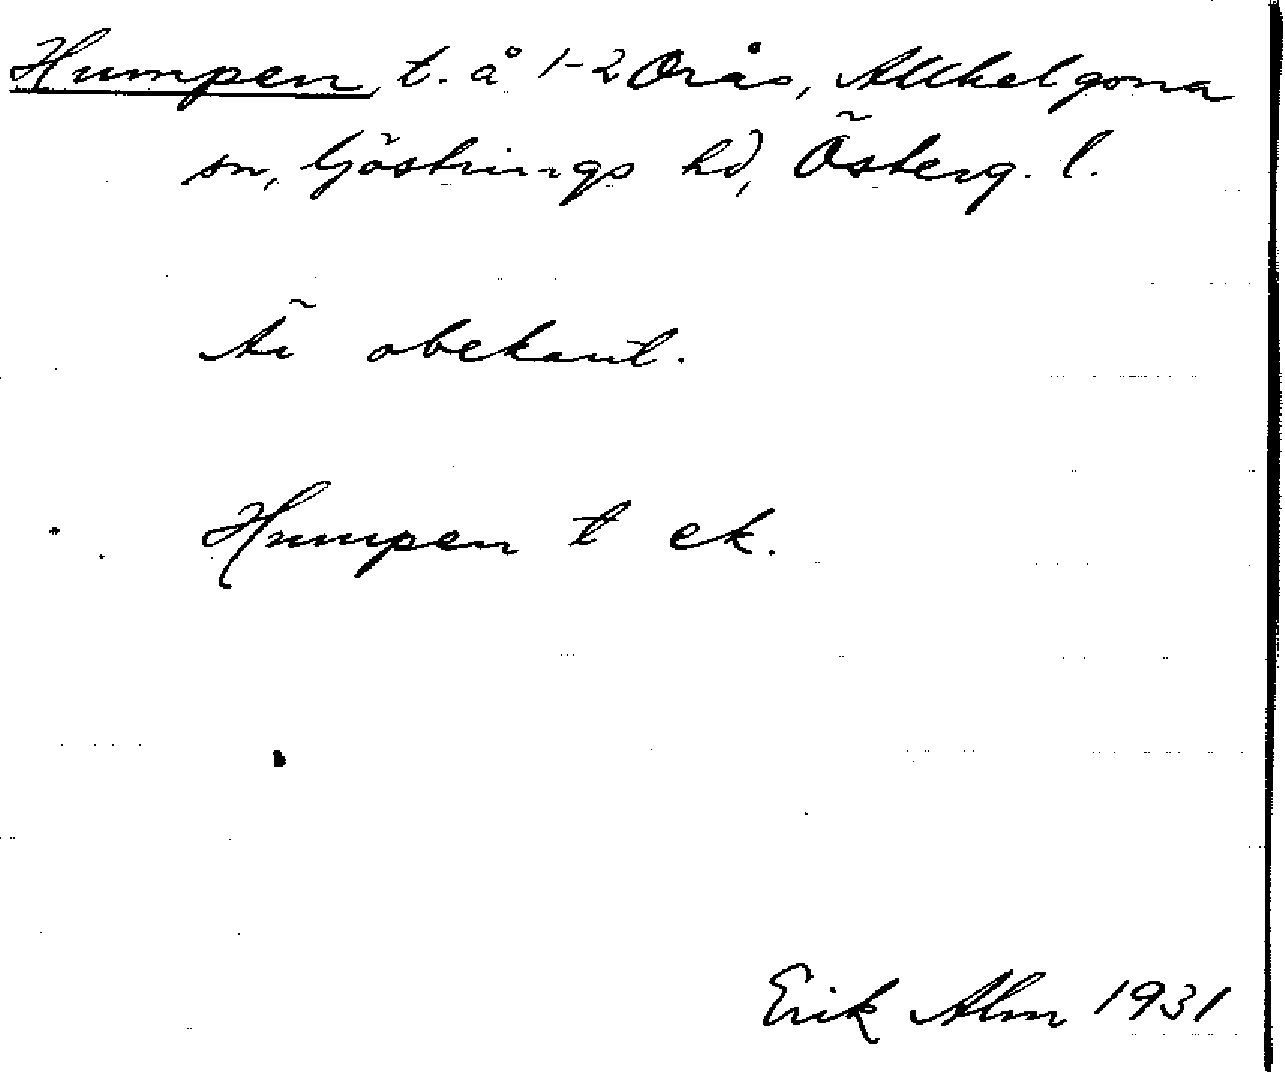 Humpen, t. å 1-2 Orås, Allhelgona
sn, Göstrings hd, Österg. l.
Är obekant.
Humpen t ek.
Erik Alm 1931